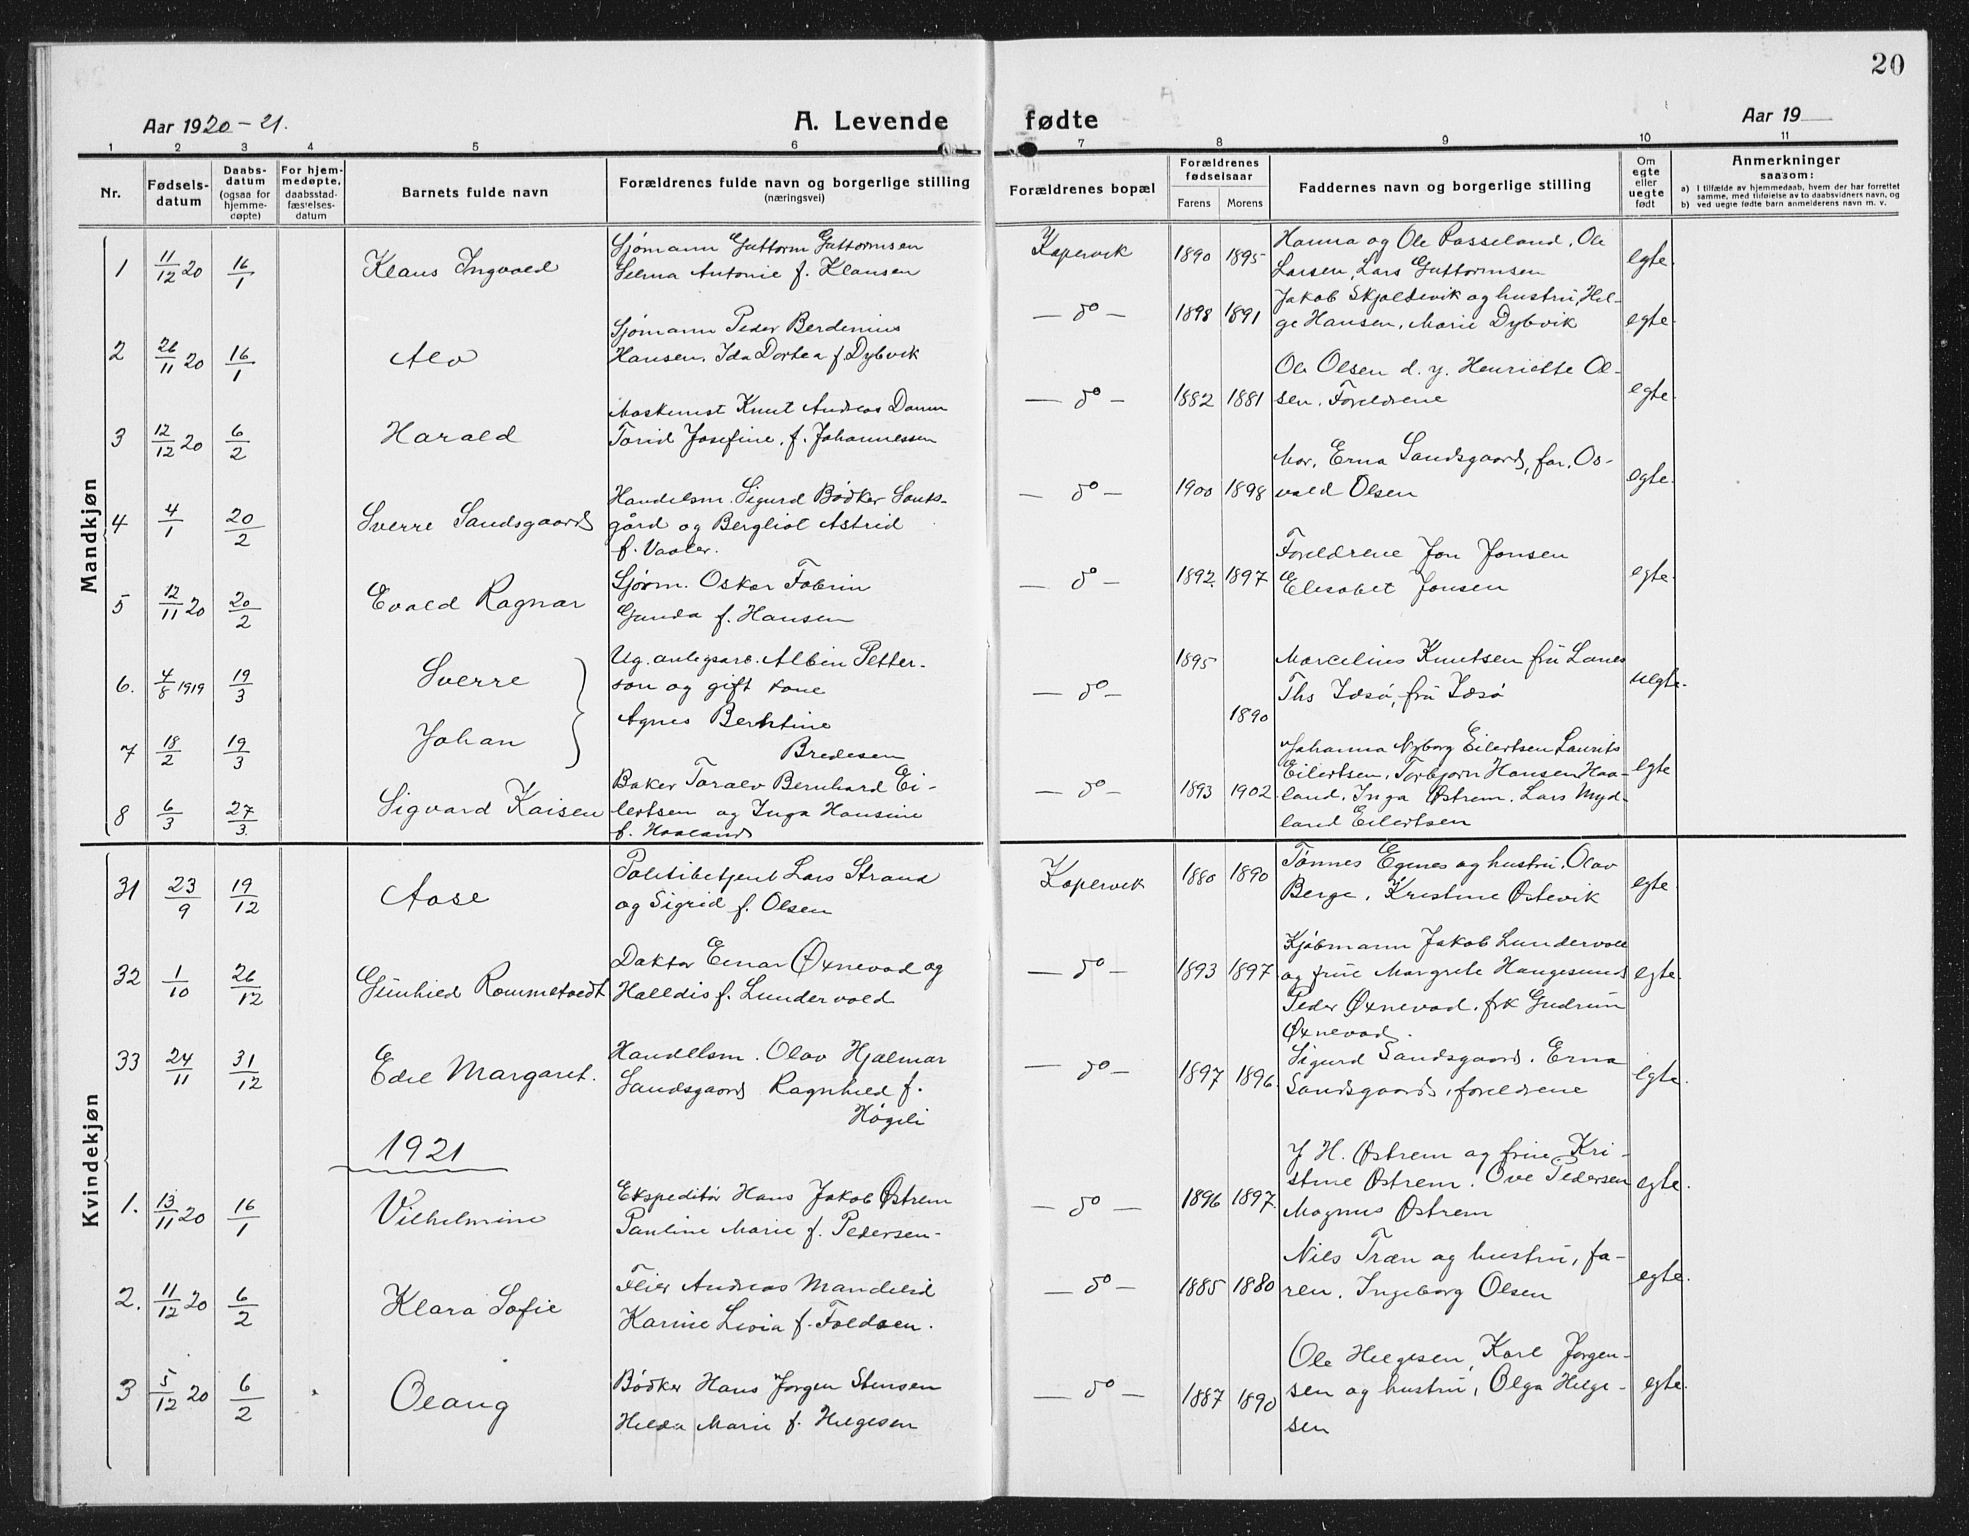 20
Aar 1920-21.
A. Levende fødte
Aar 19
1 2 3 4 5 6 7 8 9 10 11
Nr.
Fødsels-
datum
Daabs-
datum
(ogsaa for
hjemme-
døpte)
For hjem-
medøpte,
daabsstad-
fæstelses-
datum
Barnets fulde navn
Forældrenes fulde navn og borgerlige stilling
(næringsvei)
Forældrenes bopæl
Forældrenes
fødselsaar
Farens Morens
Faddernes navn og borgerlige stilling
Om
egte
eller
uegte
født
Anmerkninger
saasom:
a) I tilfælde av hjemmedaab, hvem der har forrettet
samme, med tilføielse av to daabsvidners navn, og
b) ved uegte fødte barn anmelderens navn m. v.
Mandkjøn
1 11/12 20 16/1 Klaus Ingvald
Sjømann Guttorm Guttormsen
Selma Antonie f. Klausen
Kopervik 1890 1895
Hanna og Ole Rasseland, Ole
Larsen, Lars Guttormsen
egte.
2 26/11 20 16/1 Alv
Sjømann Peder Berdinius
Hansen, Ida Dortea f. Dybvik
— do — 1898 1891
Jakob Skjoldevik og hustru, Hel-
ge Hansen, Marie Dybvik
egte.
3 12/12 20 6/2 Harald
Maskinist Knut Andreas Damm
Torid Josefine, f. Johannessen
— do — 1882 1881
Ole Olsen d. y. Henriette Ol-
sen. Foreldrene
egte.
4 4/1 20/2 Sverre Sandsgaard
Handelsm. Sigurd Bødker Sands-
gård og Bergliot Astrid
f. Vaaler.
— do — 1900 1898
Mor, Erna Sandsgaard, far, Os-
vald Olsen
egte.
5 12/11 20 20/2 Evald Ragnar
Sjøm. Oskar Fabrin
Gunda f. Hansen
— do — 1892. 1897
Foreldrene Jon Jonsen
Elisabet Jonsen
egte.
6. 4/8 1919 19/3 Sverre
7 18/2 19/3 Johan
Ug. anlegsarb. Albin Petter-
son og gift kone
Agnes Berntine
Bredesen
— do — 1895 1890
Marcelius Knutsen fru Lanes
Ths Idsø, fru Idsø
uegte.
8 6/3 27/3. Sigvard Kaisen
Baker Toralv Bernhard Ei-
lertsen og Inga Hansine
f. Haaland
— do — 1893 1902.
Johanna Nyborg Eilertsen Laurits
Eilertsen, Torbjørn Hansen Haa-
land. Inga Østrem. Lars Myd-
land Eilertsen
egte
Kvindekjøn
31 23/9 19/12 Aase
Politibetjent Lars Strand
og Sigrid f. Olsen
Kopervik 1880 1890
Tønnes Egenes og hustru. Olav
Berge, Kristine Østevik
egte.
32 1/10 26/12 Gunhild Rommetvedt
Doktor Einar Øxnevad og
Halldis f. Lundervold
— do — 1893 1897
Kjøbmann Jakob Lundervold
og frue Margrete Haugesund
Peder Øxnevad. frk Gudrun
Øxnevad.
egte.
33 24/11 31/12 Edil Margaret.
Handelsm. Olav Hjalmar
Sandsgaard Ragnhild f.
Høgili
— do — 1897 1896.
Sigurd Sandsgaard. Erna
Sandsgaard, foreldrene
egte.
1921
1. 13/11 20 16/1 Vilhelmine
Ekspeditør Hans Jakob Østrem
Pauline Marie f. Pedersen.
— do — 1896 1897.
J H. Østrem og frue Kri-
stine Østrem. Ove Pedersen
Magnus Østrem
egte.
2. 11/12 20 6/2 Klara Sofie
Andreas Mandelid
Karine Livia f. Foldøen.
— do — 1885 1880
Nils Træn og hustru, fa-
ren. Ingeborg Olsen
egte.
3 5/12 20 6/2 Olaug
Bødker Hans Jørgen Stensen
Hilda Marie f. Helgesen
— do — 1887 1890
Ole Helgesen, Karl Jørgen-
sen og hustru, Olga Helge-
sen
egte.